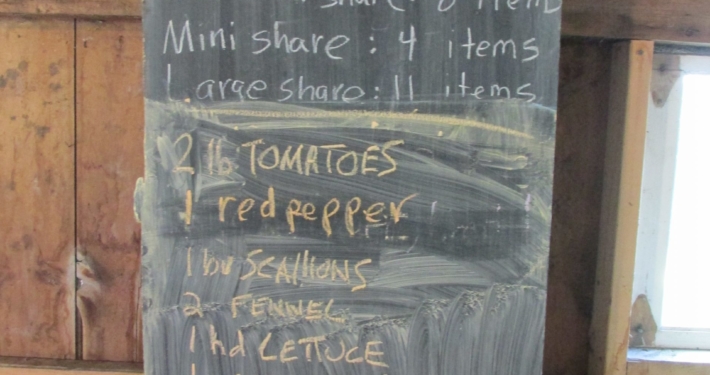 share: 8 items
Mini share: 4 items
Large share: 11 items
2 lb TOMATOES
1 red pepper
1 bu SCAllIONS
2 FENNEL
1 hd LETTUCE